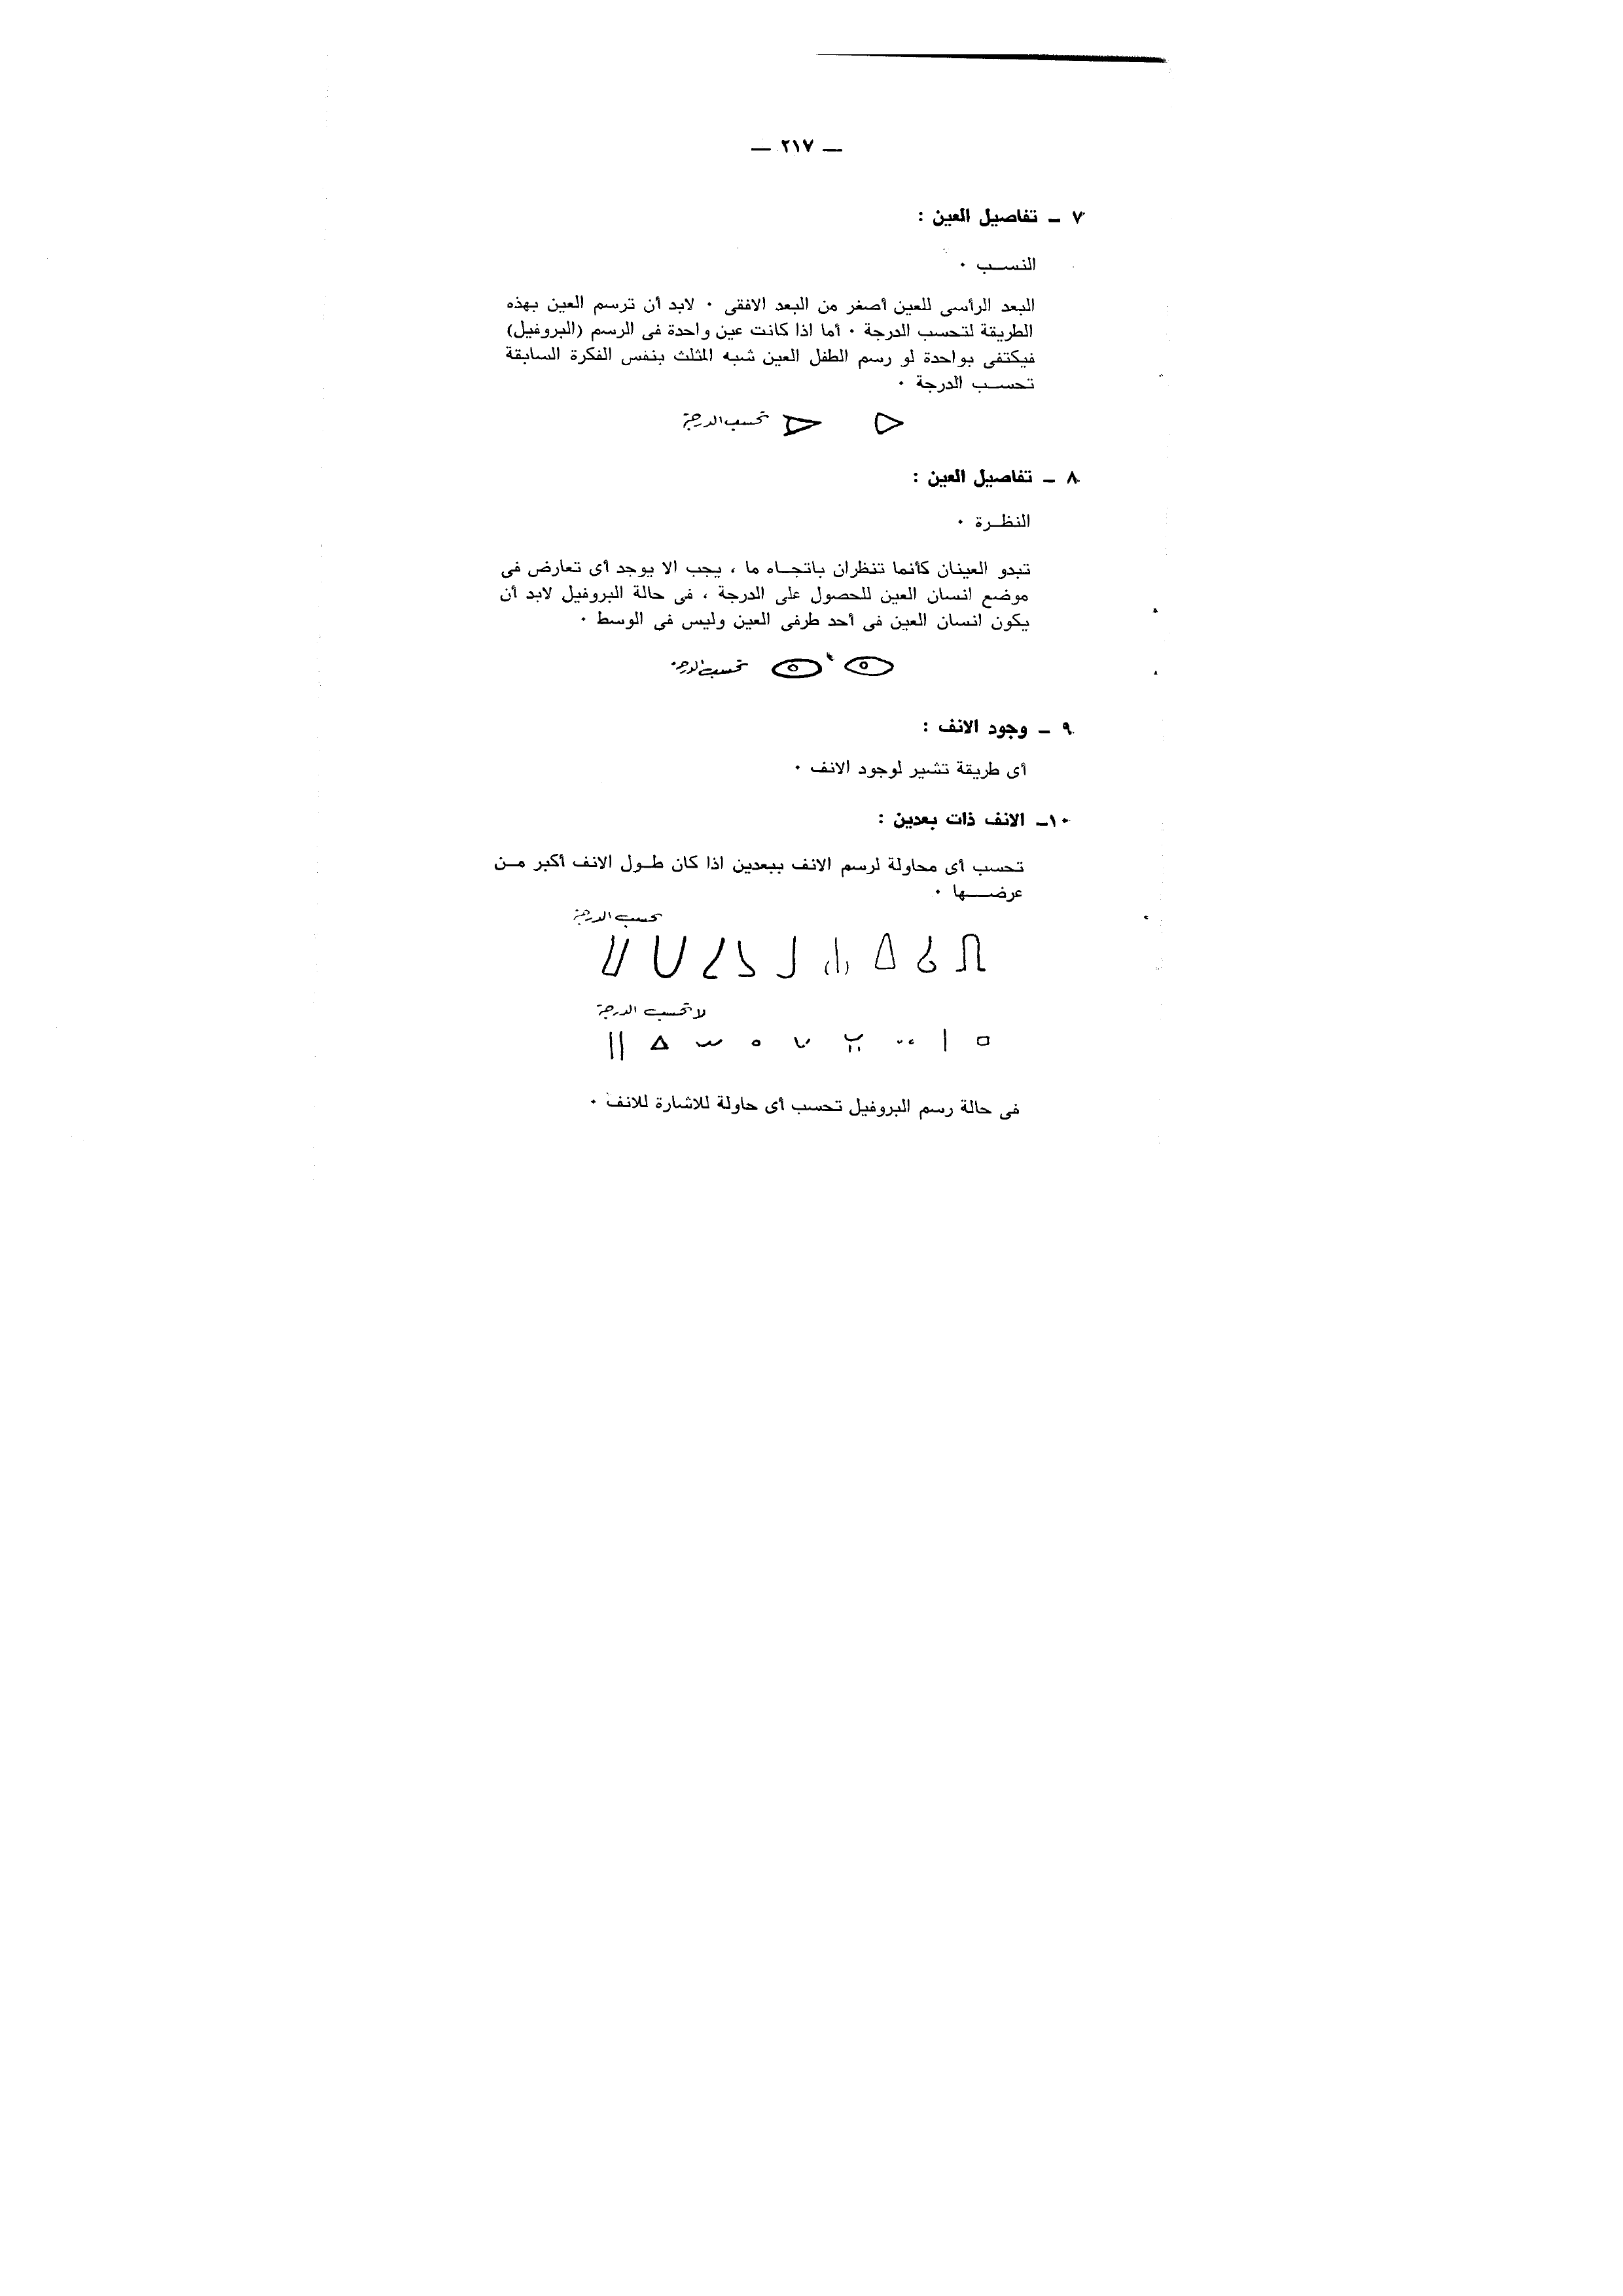 — ٢١٧ —
٧ ـ تفاصيل العين :
النسب ٠
البعد الرأسى للعين أصغر من البعد الافقى ٠ لابد أن ترسم العين بهذه
الطريقة لتحسب الدرجة ٠ أما اذا كانت عين واحدة فى الرسم (البروفيل)
فيكتفى بواحدة لو رسم الطفل العين شبه المثلث بنفس الفكرة السابقة
تحسب الدرجة ٠
تحسب الدرجة
٨ ـ تفاصيل العين :
النظرة ٠
تبدو العينان كأنما تنظران باتجاه ما ، يجب الا يوجد أى تعارض فى
موضع انسان العين للحصول على الدرجة ، فى حالة البروفيل لابد أن
يكون انسان العين فى أحد طرفى العين وليس فى الوسط ٠
تحسب الدرجة
٩ ـ وجود الانف :
أى طريقة تشير لوجود الانف ٠
١٠ـ الانف ذات بعدين :
تحسب أى محاولة لرسم الانف ببعدين اذا كان طول الانف أكبر من
عرضها ٠
تحسب الدرجة
لا تحسب الدرجة
فى حالة رسم البروفيل تحسب أى حاولة للاشارة للانف ٠